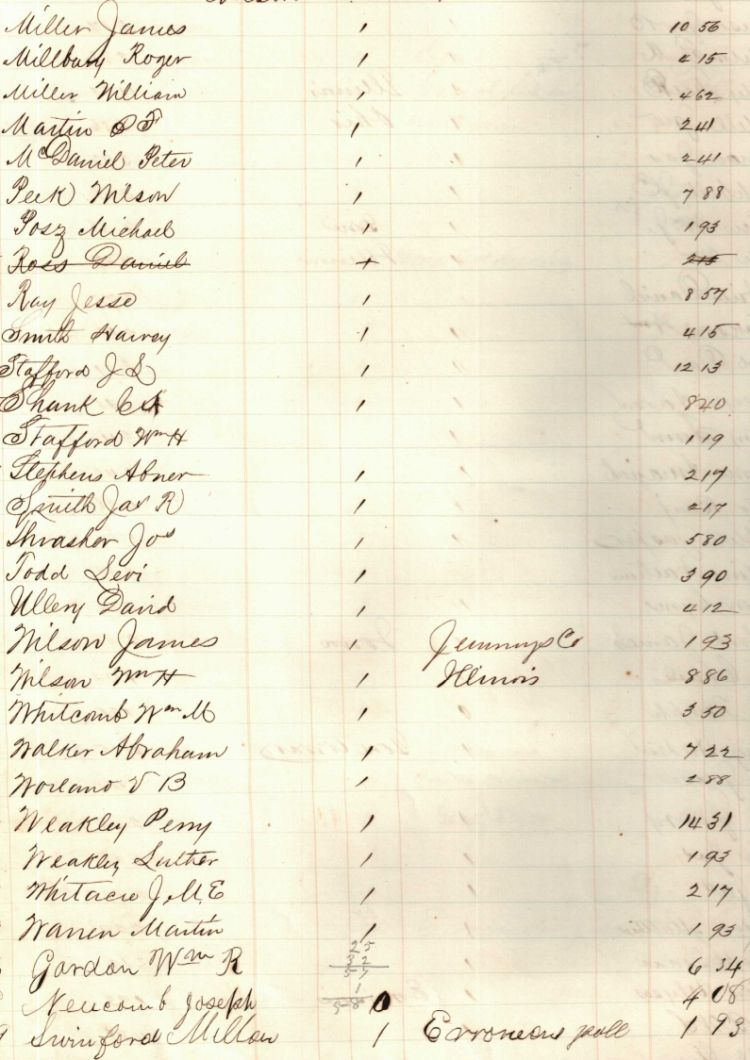 Miller James 1 10 56
Millbury Roger 1 4 15
Miller William 1 4 62
Martin P F 1 2 41
McDaniel Peter 1 2 41
Peek Wilson 1 7 88
Posz Michael 1 1 93
Ross Daniel 1 2 15
Ray Jesse 1 8 57
Smith Harvey 1 4 15
Stafford J L 1 12 13
Shank 1 8 40
Stafford Wm H 1 19
Stephens Abner 1 2 17
Smith Jas R 1 2 17
Thrasher Jos 1 5 80
Todd Levi 1 3 90
Ullery David 1 4 12
Wilson James 1 Jennings Co 1 93
Wilson Wm H 1 Illinois 8 86
Whitcomb Wm M 1 3 50
Walker Abraham 1 7 22
Worland V B 1 2 88
Weakley Perry 1 14 31
Weakley Luther 1 1 93
Whitacre J. M. E 1 2 17
Warren Martin 1 1 93
25
32
Gordon Wm R 57 6 34
1
Newcomb Joseph 58 0 4 08
Swinford Milton 1 Erroneous poll 1 93